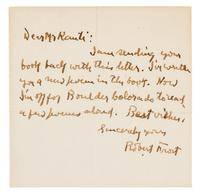 Dear Mr Rauti:
I am sending your
book back with this letter. I've written
you a new poem in the book. Now
I'm off for Boulder Colorado to read
a few poems aloud. Best wishes,
Sincerely yours
Robert Frost